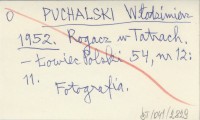 O PUCHALSKI Włodzimierz
1952. Rogacz w Tatrach.
– Łowiec Polski 54, nr 12:
11.
Fotografia.